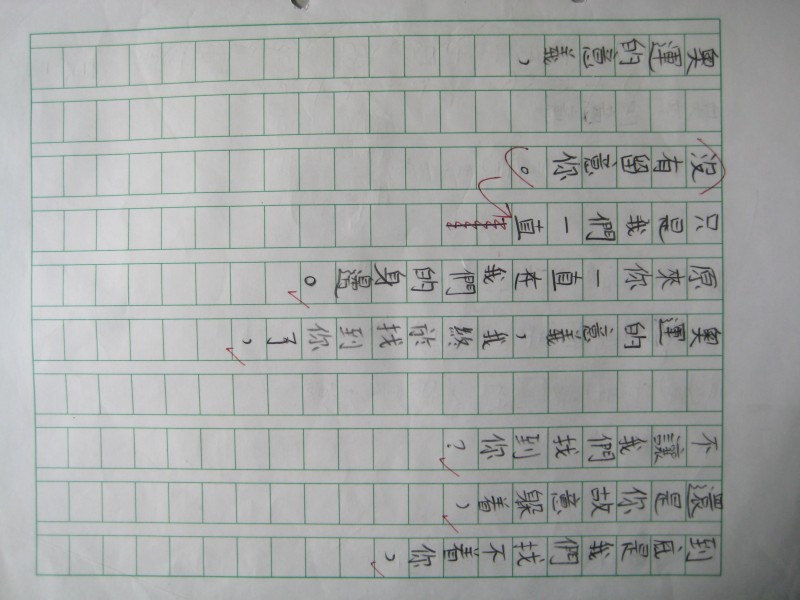 到底是我們找不着你，
還是你故意躲着，
不讓我們找到你？
奧運的意義，我終於找到你了，
原來你一直在我們的身邊。
只是我們一直
沒有留意你。
奧運的意義，